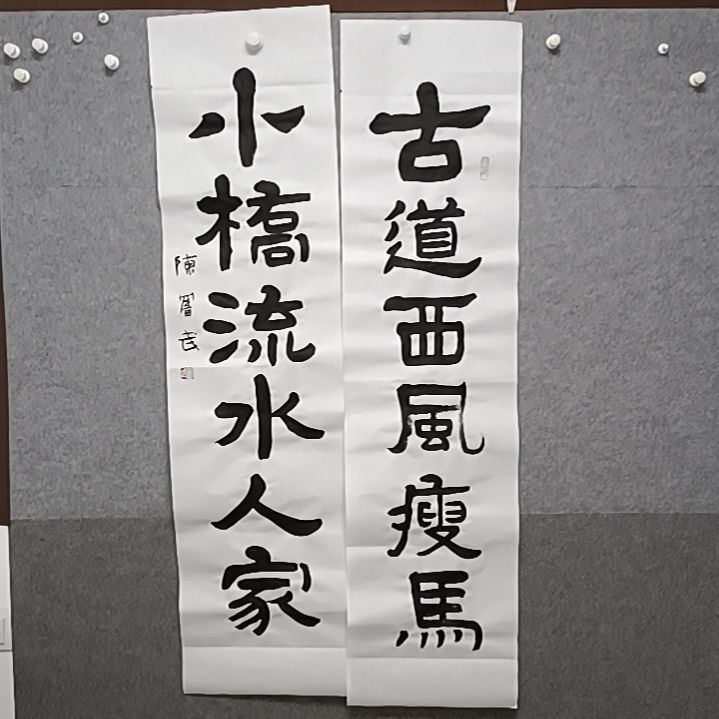 古道西風瘦馬
小橋流水人家